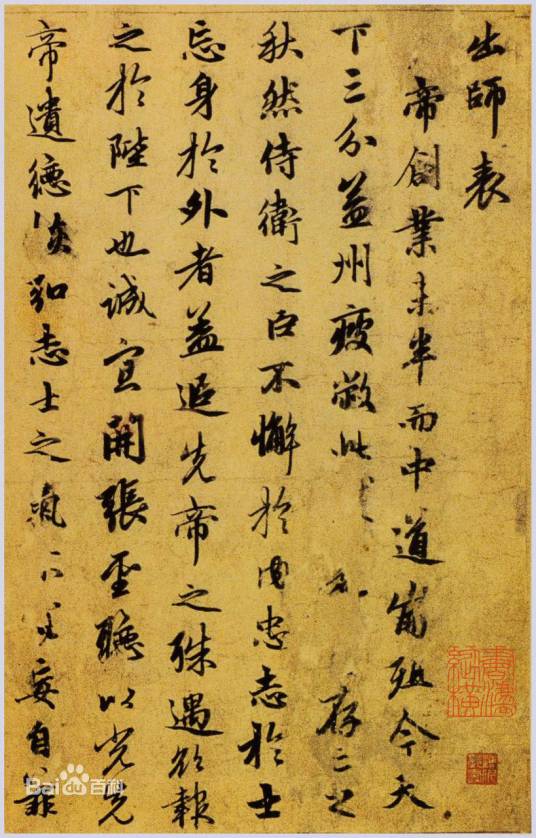 出師表
帝創業未半而中道崩殂今天
下三分益州疲敝此存亡之
秋然侍衛之臣不懈於内忠志於士
忘身於外者蓋追先帝之殊遇欲報
之於陛下也誠宜開張聖聽以光先
帝遺德恢弘志士之氣不宜妄自菲
Baidu百科